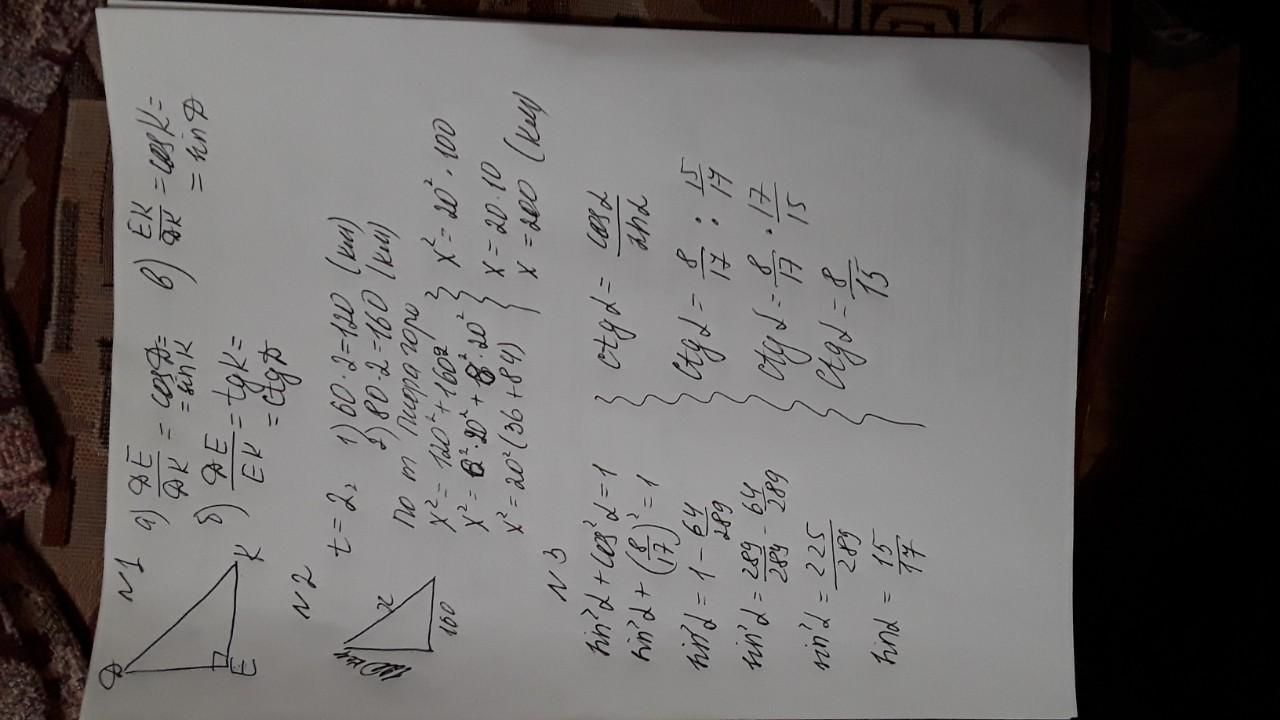 N 1
D
E
K
а) DE/DK = cosD=
= sinK
б) DE/EK = tgK=
= ctgD
в) EK/DK = cosK=
= sinD
N 2
x
160
t = 2,
1) 60 · 2 = 120 (км)
2) 80 · 2 = 160 (км)
по т Пифагора
x² = 120² + 160²
x² = 6² · 20² + 8² · 20²
x² = 20² (36 + 84)
x² = 20² · 100
x = 20 · 10
x = 200 (км)
N 3
sin²α + cos²α = 1
sin²α + (8/17)² = 1
sin²α = 1 - 64/289
sin²α = 289/289 - 64/289
sin²α = 225/289
sinα = 15/17
ctgα = cosα/sinα
ctgα = 8/17 : 15/17
ctgα = 8/17 · 17/15
ctgα = 8/15